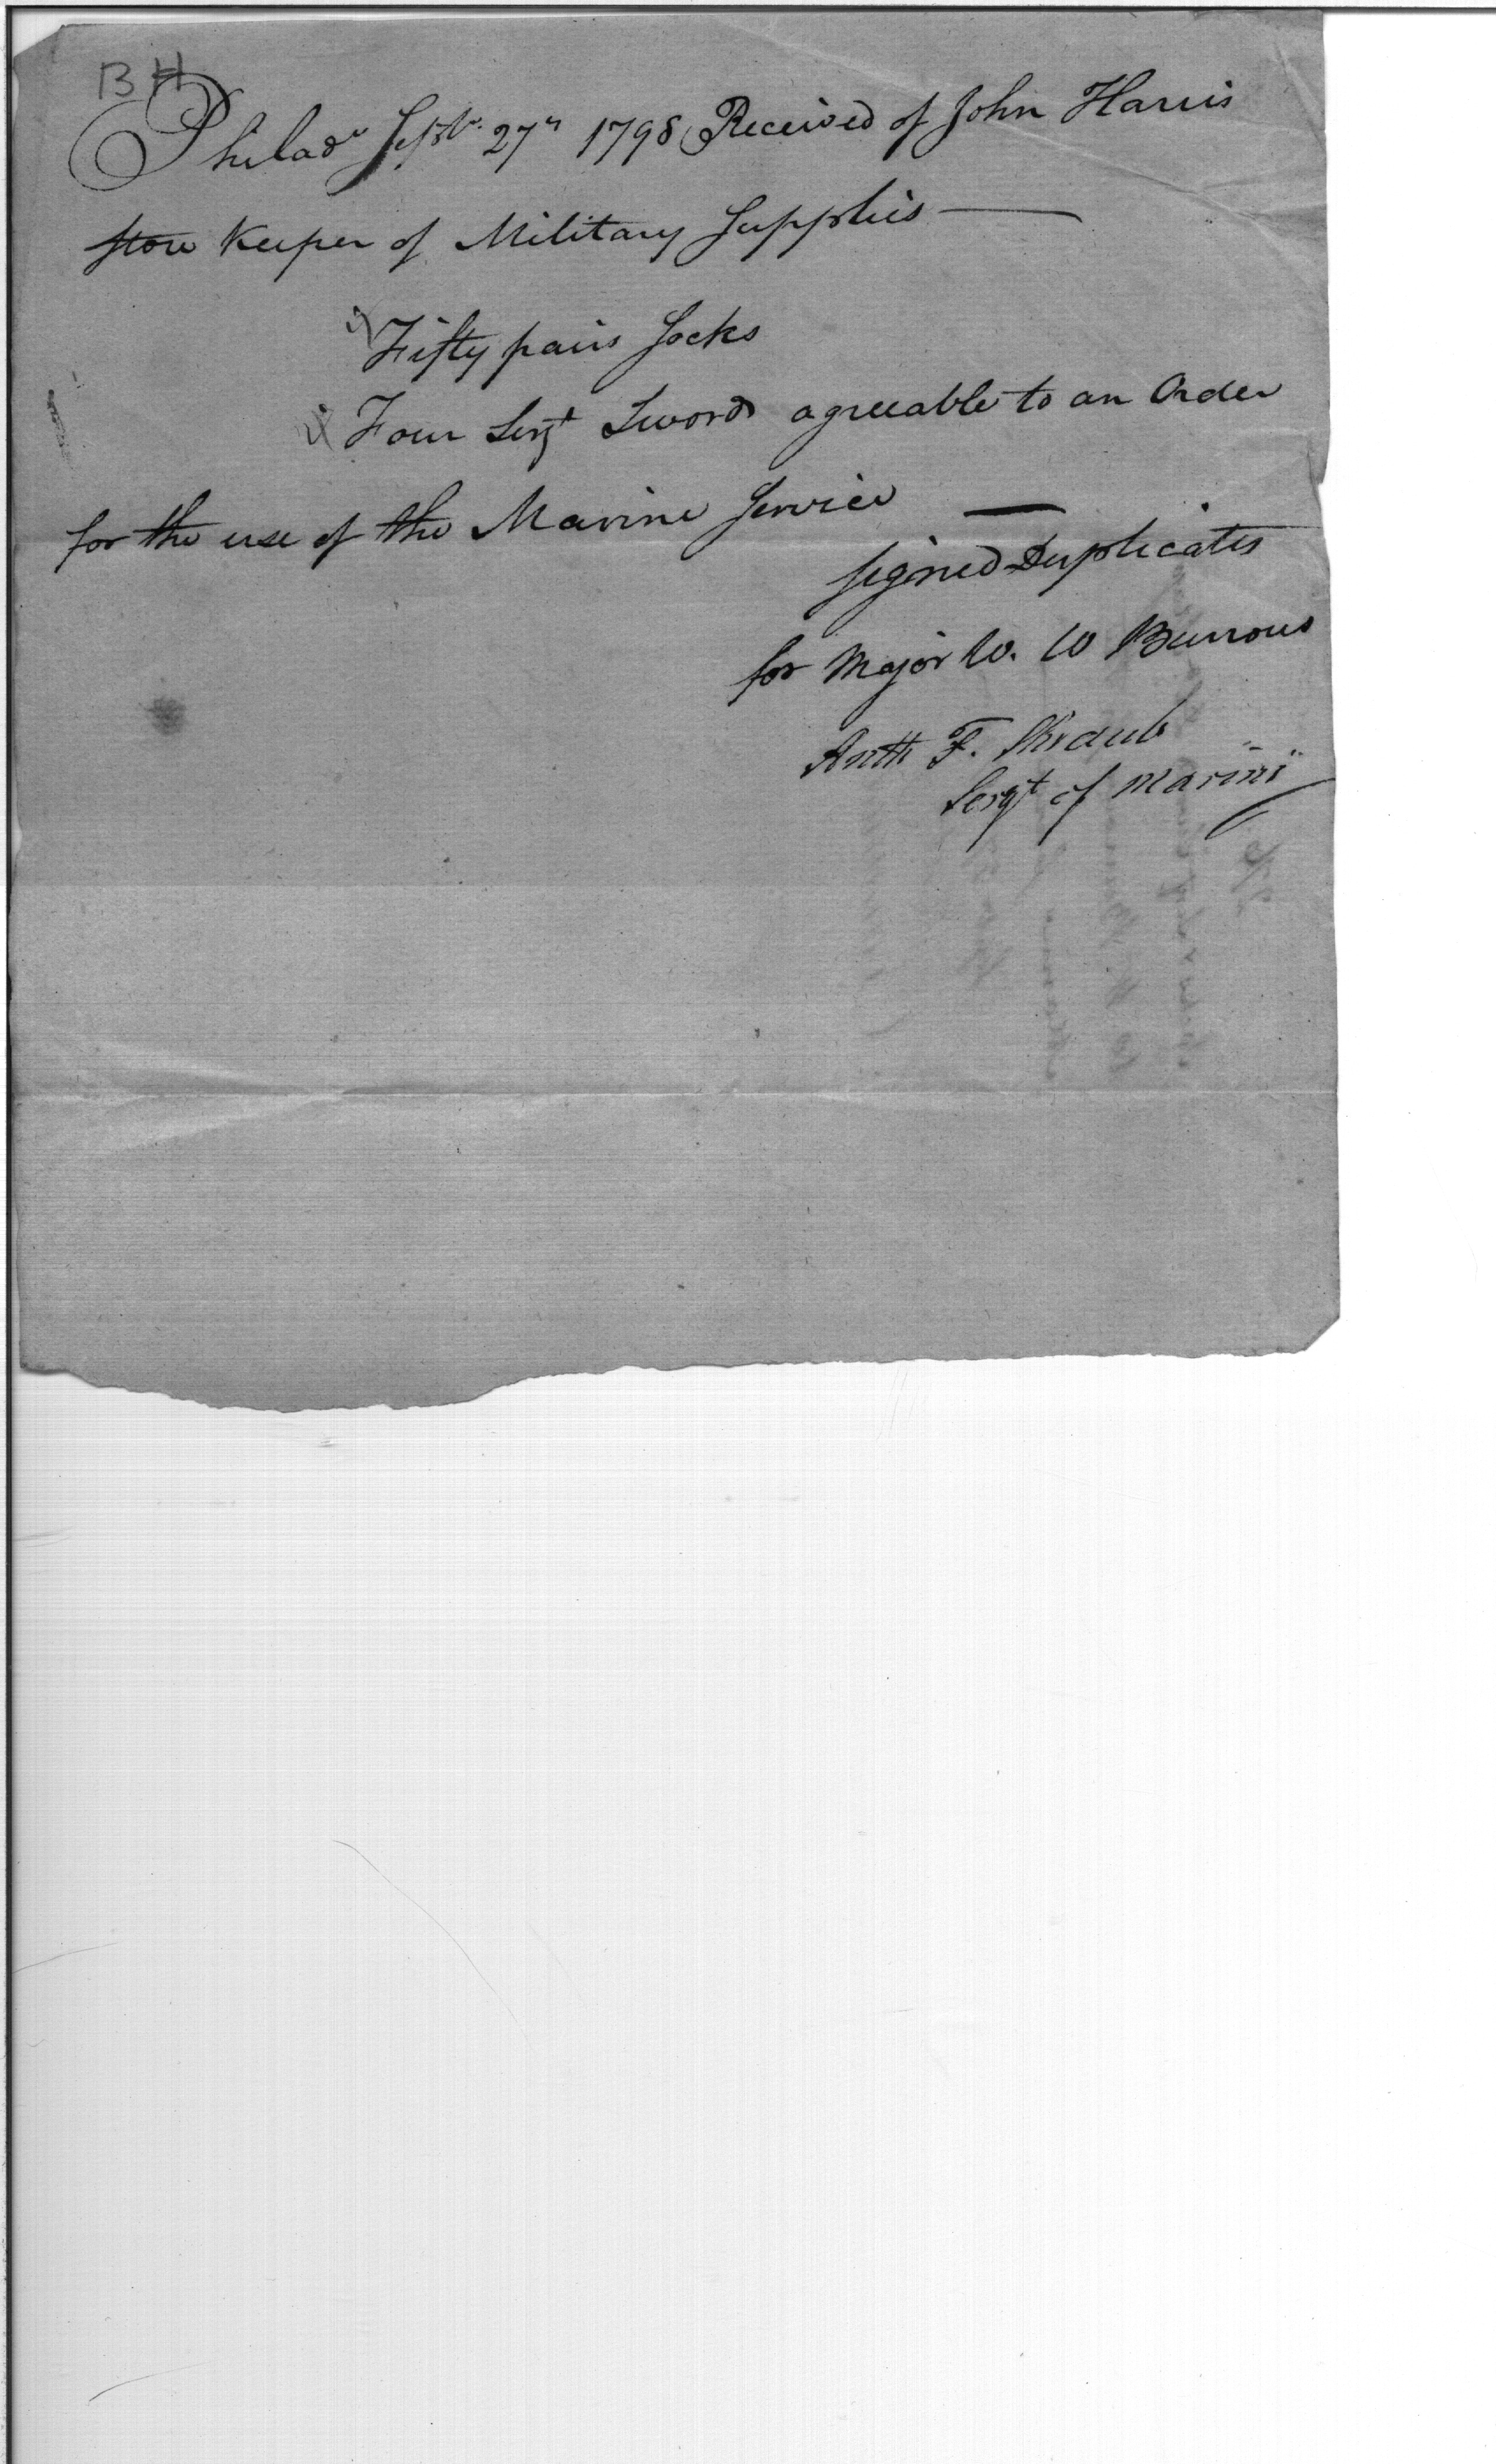 BH
Philada Septr. 27th 1798 Received of John Harris
Store Keeper of Military Supplies —
Fifty pairs Socks
Four Sergt Swords agreeable to an Order
for the use of the Marine Service —
Signed Duplicates
for Major W. W Burrows
Anth F. Shraub
Sergt of Marins